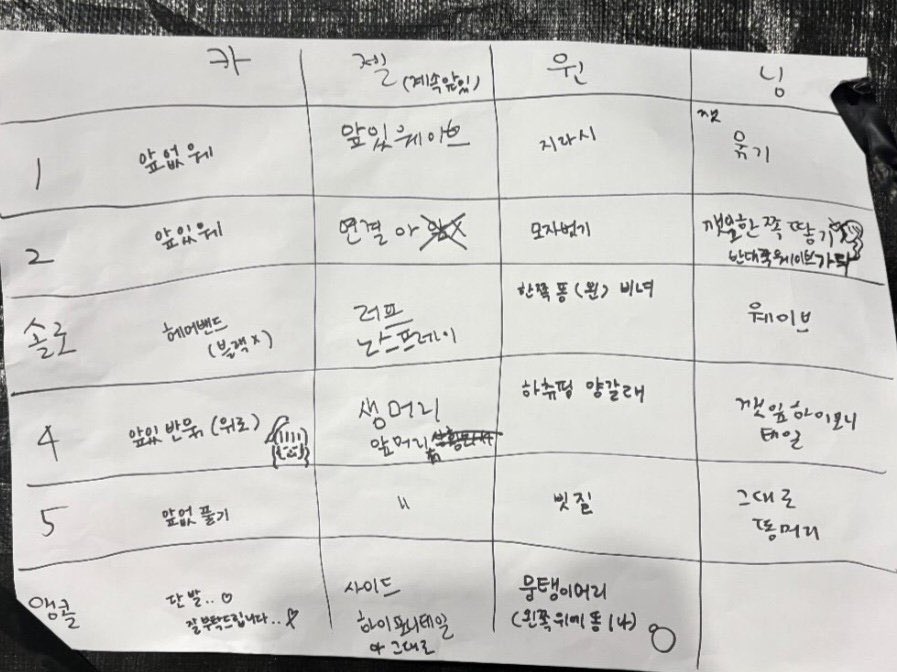 카 젤 (계속앞있) 윈 닝
1 앞없웨 앞있웨이브 지라시 깻 묶기
2 앞있웨 연결 아 모자벗기 깻잎한쪽 땋기
반대쪽웨이브가닥
솔로 헤어밴드 러프 한쪽 똥 (왼) 비녀 웨이브
(블랙x) 난스프레이
4 앞있 반묶 (위로) 샘머리 하츄핑 양갈래 깻잎하이포니
앞머리 테일
5 앞없 풀기 〃 빗질 그대로
똥머리
앵콜 단발..♡ 사이드 뭉탱이머리
잘부탁드립니다.. 하이포니테일 (왼쪽위에 똥 1나)
아 그대로